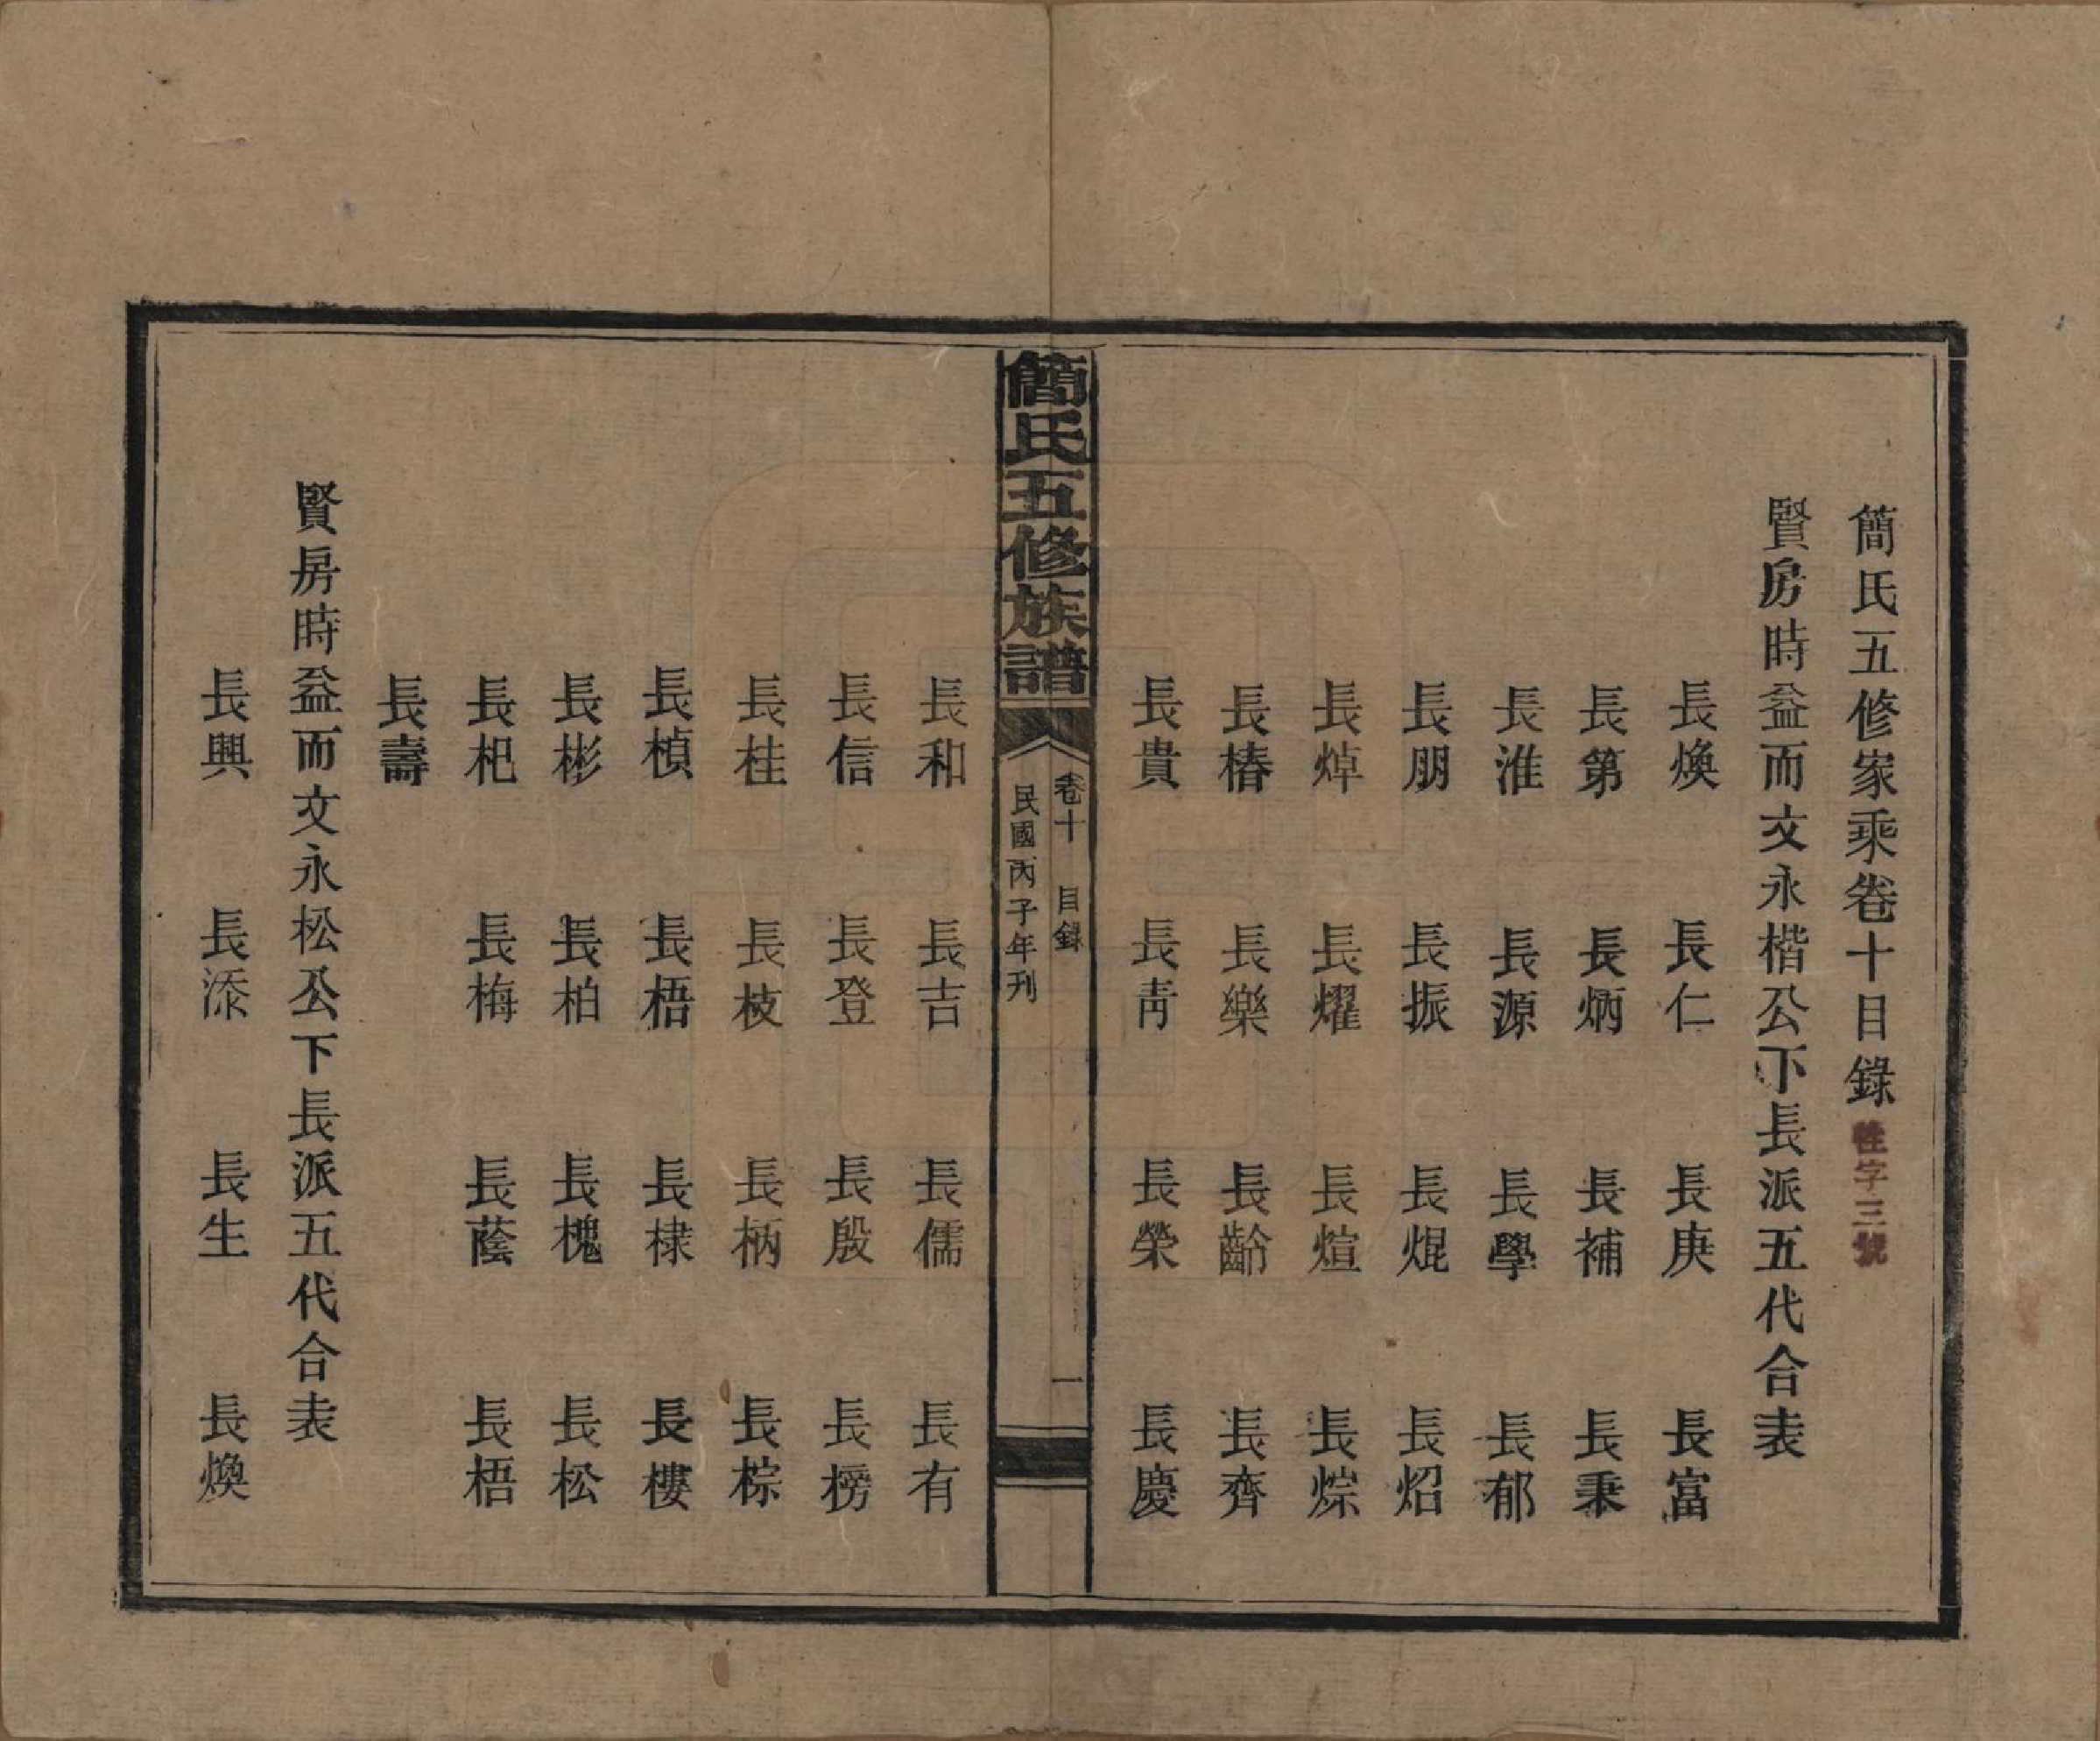 簡氏五修家乘卷十目錄 牲字三號
賢房時益而文永楷公下長派五代合表
長煥 長仁 長庚 長富
長第 長炳 長補 長秉
長淮 長源 長學 長郁
長朋 長振 長焜 長炤
長焯 長燿 長煊 長焠
長椿 長樂 長齡 長齊
長貴 長青 長榮 長慶
簡氏五修族譜
卷十 目錄 一
民國丙子年刊
長和 長吉 長儒 長有
長信 長登 長殷 長榜
長桂 長枝 長柄 長棕
長楨 長梧 長棣 長樓
長彬 長柏 長槐 長松
長杞 長梅 長蔭 長梧
長壽
賢房時益而文永松公下長派五代合表
長興 長添 長生 長煥